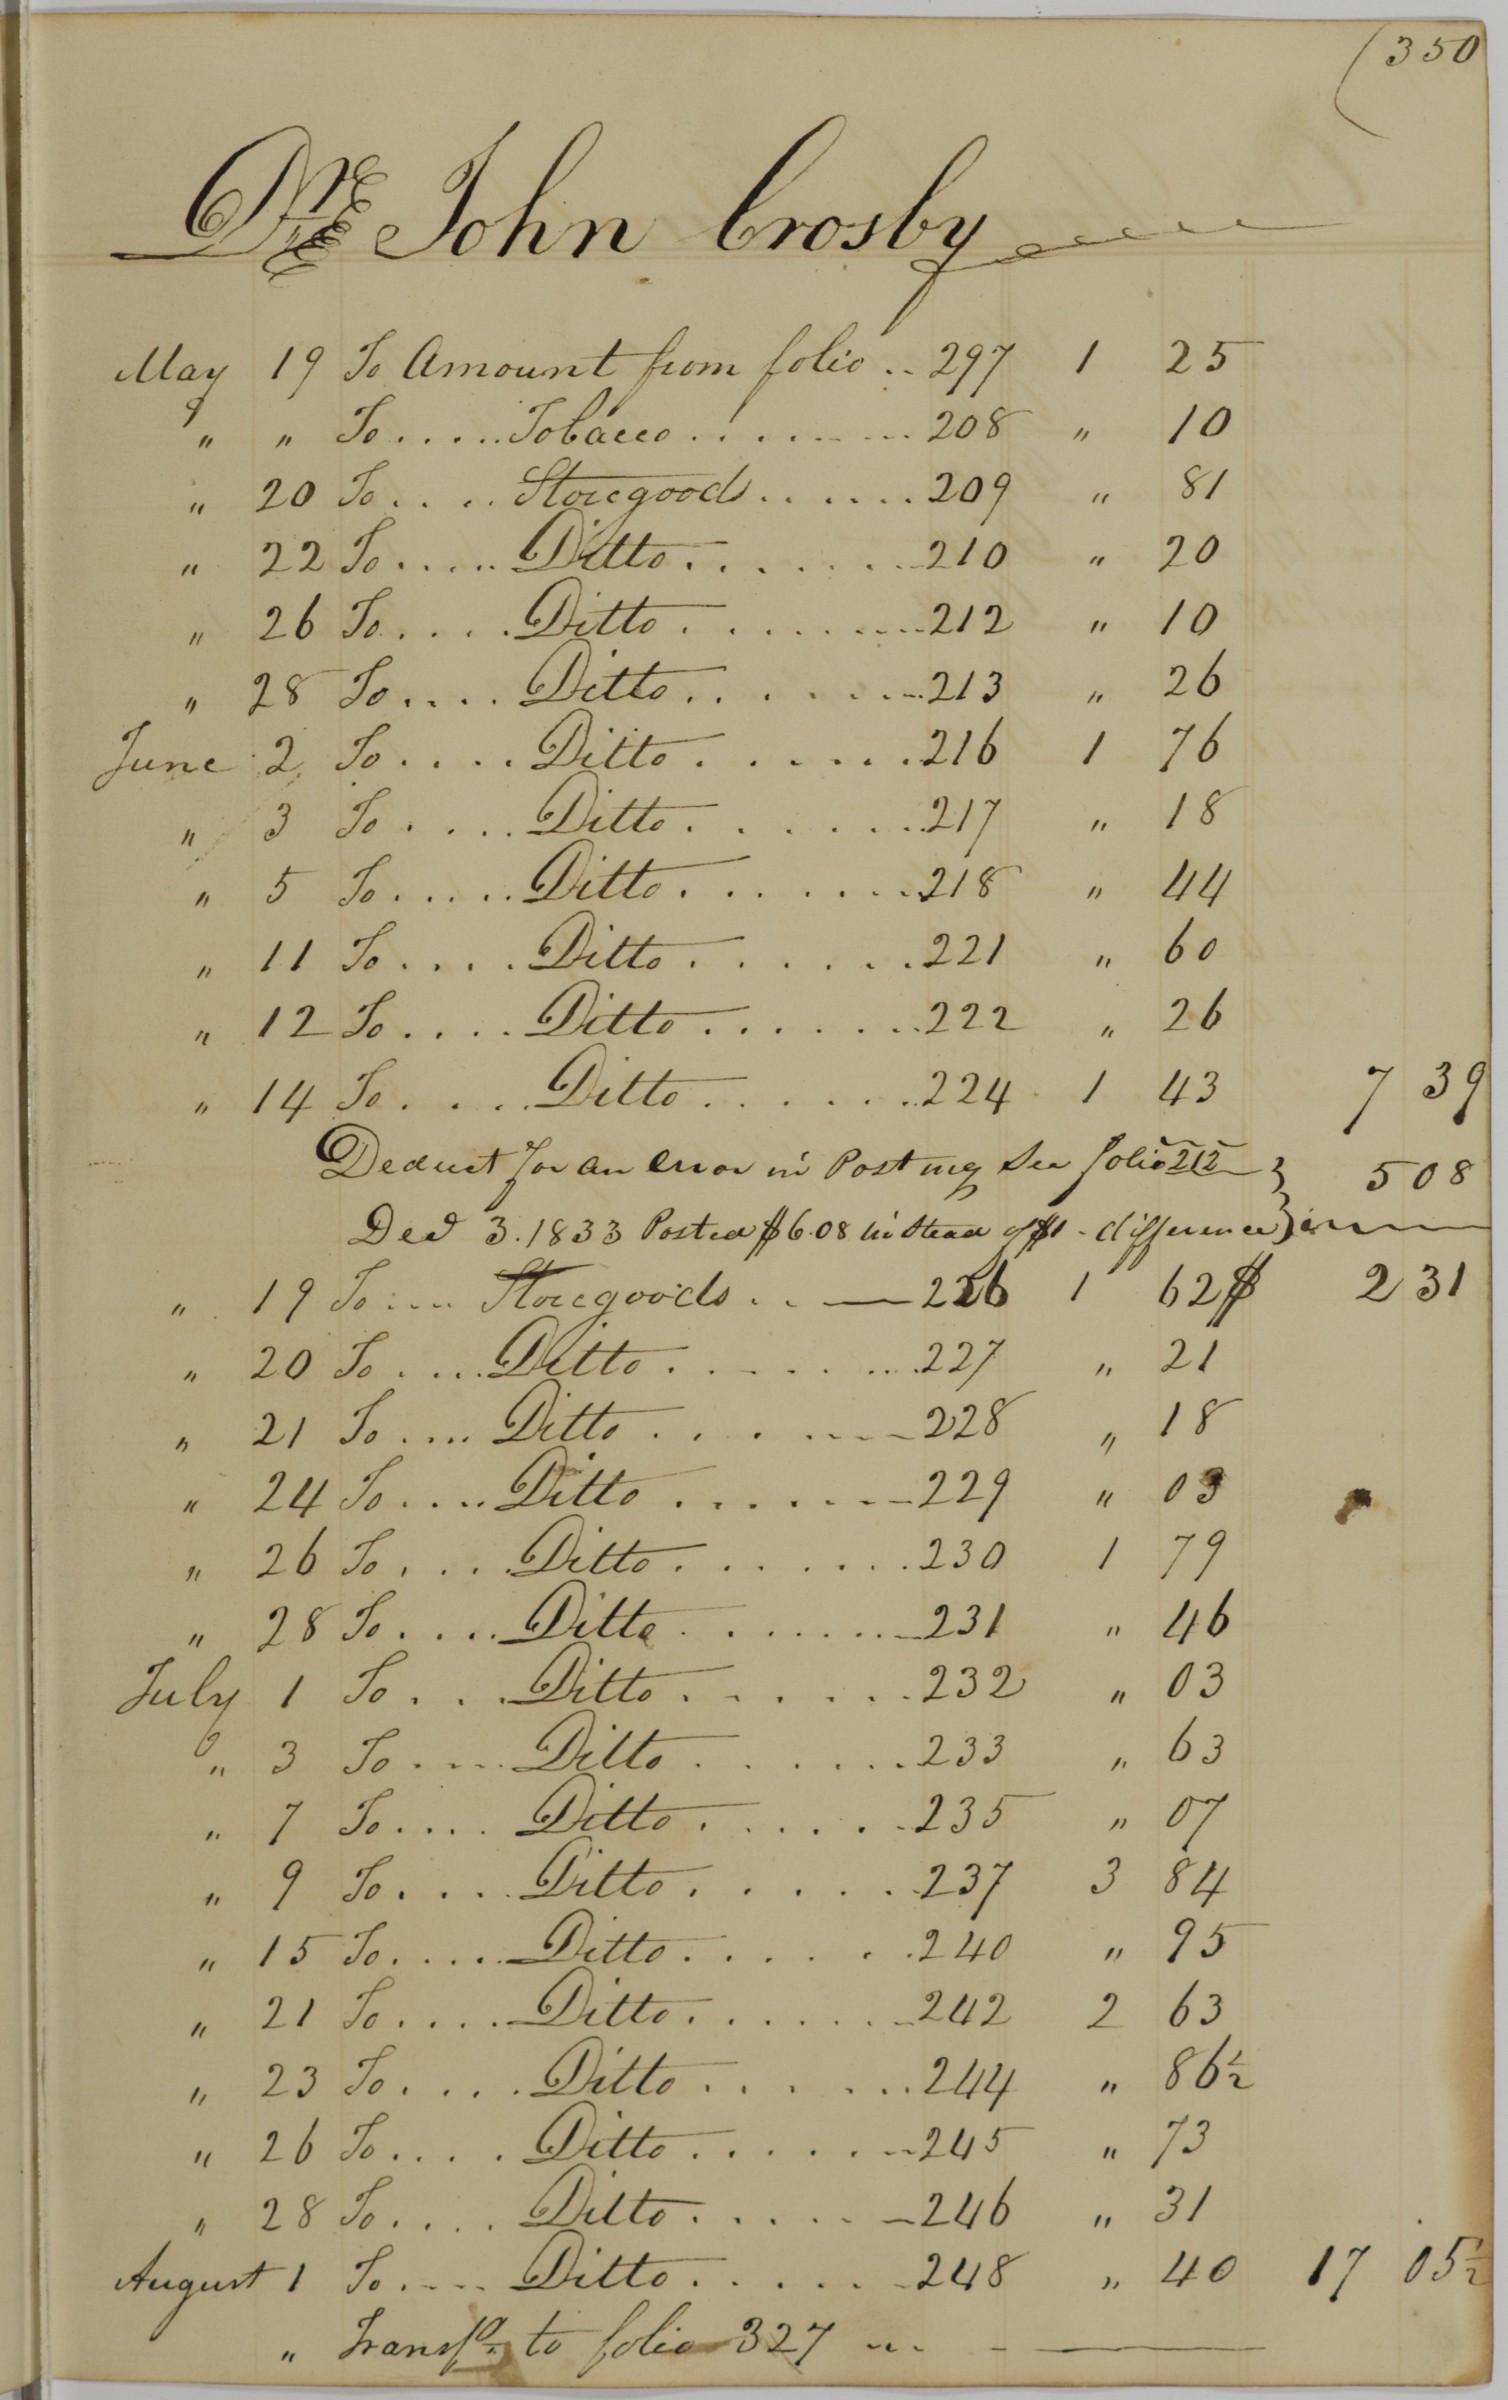 (350
Dr John Crosby
May 19 To Amount from folio .. 297 1 25
" " To ..... Tobacco ........ 208 " 10
" 20 To .... Storegoods ...... 209 " 81
" 22 To ..... Ditto ....... 210 " 20
" 26 To ..... Ditto ........ 212 " 10
" 28 To .... Ditto ....... 213 " 26
June 2 To .... Ditto ...... 216 1 76
" 3 To .... Ditto ....... 217 " 18
" 5 To ..... Ditto ....... 218 " 44
" 11 To .... Ditto ...... 221 " 60
" 12 To .... Ditto ....... 222 " 26
" 14 To .... Ditto ...... 224 1 43 7 39
Deduct for an error in Posting See folio 212 } 5 08
Decr 3. 1833 Posted $6.08 instead of $1 - difference }
" 19 To .... Storegoods .. 226 1 62 $ 2 31
" 20 To .... Ditto ....... 227 " 21
" 21 To .... Ditto ....... 228 " 18
" 24 To .... Ditto ....... 229 " 03
" 26 To .... Ditto ....... 230 1 79
" 28 To .... Ditto ....... 231 " 46
July 1 To ... Ditto ...... 232 " 03
" 3 To .... Ditto ...... 233 " 63
" 7 To .... Ditto ...... 235 " 07
" 9 To .... Ditto ...... 237 3 84
" 15 To ..... Ditto ...... 240 " 95
" 21 To ..... Ditto ...... 242 2 63
" 23 To .... Ditto ...... 244 " 86½
" 26 To .... Ditto ...... 245 " 73
" 28 To .... Ditto ...... 246 " 31
August 1 To .... Ditto ...... 248 " 40 17 05½
" Transfd to folio 327 ...